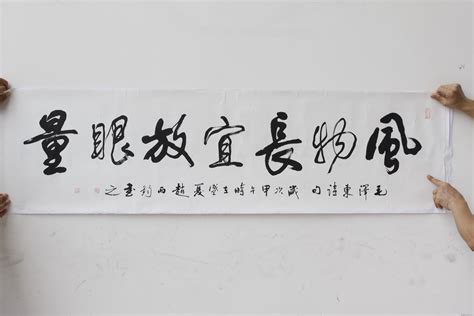 風物長宜放眼量
毛澤東詩句歲次甲午時夏趙書之